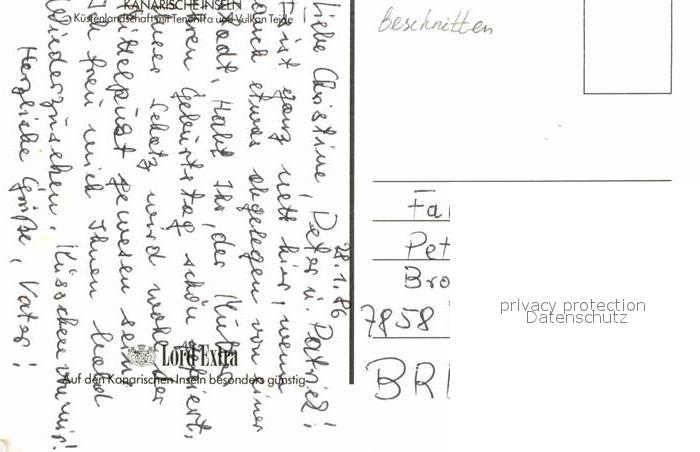 KANARISCHE INSELN
Küstenlandschaft mit Teneriffa und Vulkan Teide
28.1.86
Liebe Christine, Peter u. Patrick!
Es ist ganz nett hier, wenn
auch etwas abgelegen von einer
Stadt. Habt Ihr, der Mutter
ihren Geburtstag schön gefeiert.
Unser Schatz wird wohl der
Mittelpunkt gewesen sein.
Ich freu mich Ihnen bald
Wiederzusehen. Küsschen von mir!
Herzliche Grüße, Vater!
Lord Extra
Auf den Kanarischen Inseln besonders günstig
beschnitten
Fa
Pet
Bro
7858
BR
privacy protection
Datenschutz